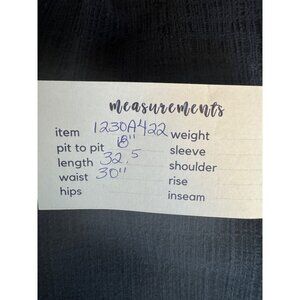 measurements
item 1230A422 weight
pit to pit 18" sleeve
length 32.5 shoulder
waist 30" rise
hips inseam